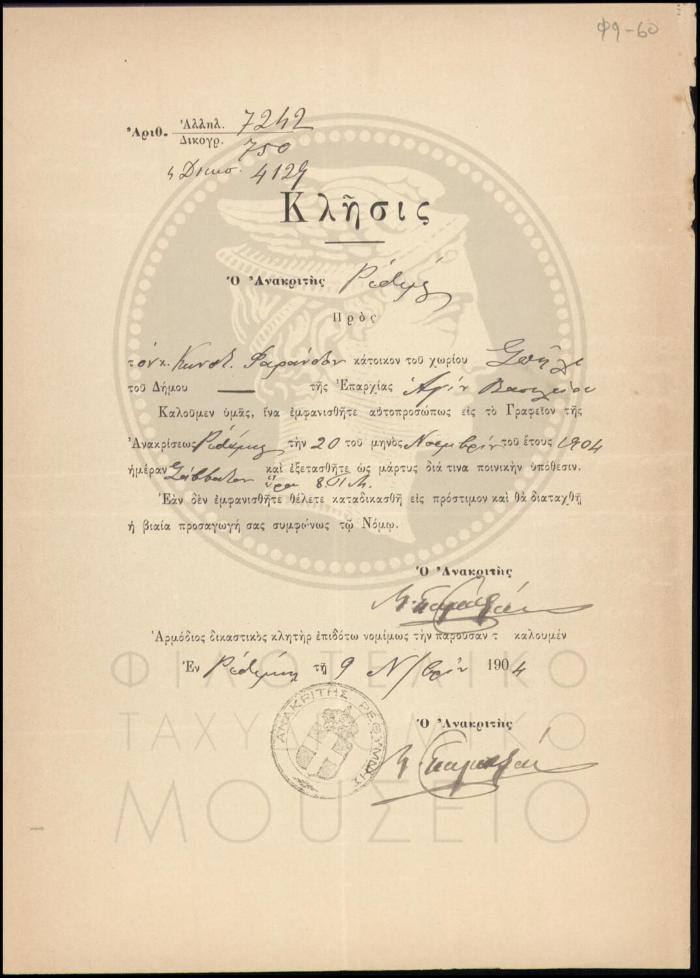 φ9-60
Ἀριθ. Ἀλληλ. 7242
Δικογρ. 750
4129
Κλῆσις
Ὁ Ἀνακριτὴς Ρεθύμνης
Πρὸς
τὸν κ. Κωνστ. κάτοικον τοῦ χωρίου Σπήλι
τοῦ Δήμου — τῆς Ἐπαρχίας Ἁγίου Βασιλείου
Καλοῦμεν ὑμᾶς, ἵνα ἐμφανισθῆτε αὐτοπροσώπως εἰς τὸ Γραφεῖον τῆς
Ἀνακρίσεως Ρεθύμνης τὴν 20 τοῦ μηνὸς Νοεμβρίου τοῦ ἔτους 1904
ἡμέραν Σάββατον καὶ ἐξετασθῆτε ὡς μάρτυς διά τινα ποινικὴν ὑπόθεσιν.
ὥραν 8 π.μ.
Ἐὰν δὲν ἐμφανισθῆτε θέλετε καταδικασθῆ εἰς πρόστιμον καὶ θὰ διαταχθῇ
ἡ βιαία προσαγωγή σας συμφώνως τῷ Νόμῳ.
Ὁ Ἀνακριτὴς
Ἁρμόδιος δικαστικὸς κλητὴρ ἐπιδότω νομίμως τὴν παροῦσαν τ καλουμέν
Ἐν Ρεθύμνῃ τῇ 9 Ν/βρίου 1904
Ὁ Ἀνακριτὴς
ΑΝΑΚΡΙΤΗΣ ΡΕΘΥΜΝΗΣ
ΦΙΛΟΤΕΛΙΚΟ
ΤΑΧΥΔΡΟΜΙΚΟ
ΜΟΥΣΕΙΟ